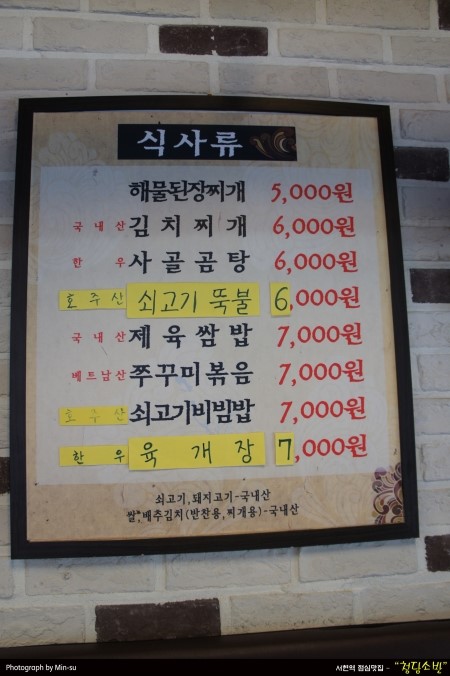 식사류
해물된장찌개 5,000원
국내산 김치찌개 6,000원
한우 사골곰탕 6,000원
호주산 쇠고기 뚝불 6,000원
국내산 제육쌈밥 7,000원
베트남산 쭈꾸미볶음 7,000원
호주산 쇠고기비빔밥 7,000원
한우 육개장 7,000원
쇠고기,돼지고기-국내산
쌀*,배추김치(반찬용,찌개용)-국내산
Photograph by Min-su
서현역 점심맛집 - "청딩소반"